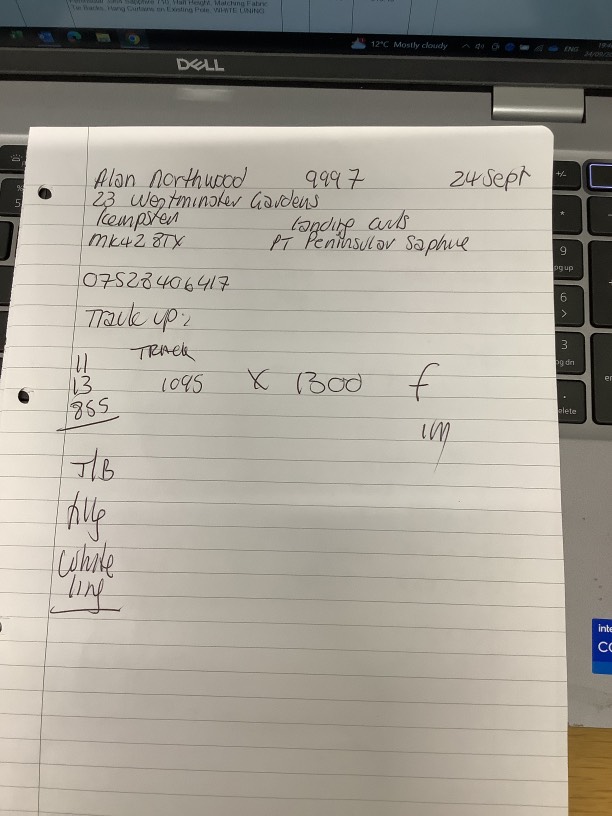 Peninsular Sapphire 710, Half Height, Matching Fabric
Tie Backs, Hang Curtains on Existing Pole, WHITE LINING
12°C Mostly cloudy
ENG
DELL
Alan Northwood 9997 24 Sept
23 Westminster Gardens
Kempston Landing curts
MK42 8TX PT Peninsular Saphire
07528406417
Track up:
TRACK
11
13 1095 X 1300 f
855
1M
T/B
hang
White
ling
+/-
*
9
pg up
6
>
3
pg dn
.
elete